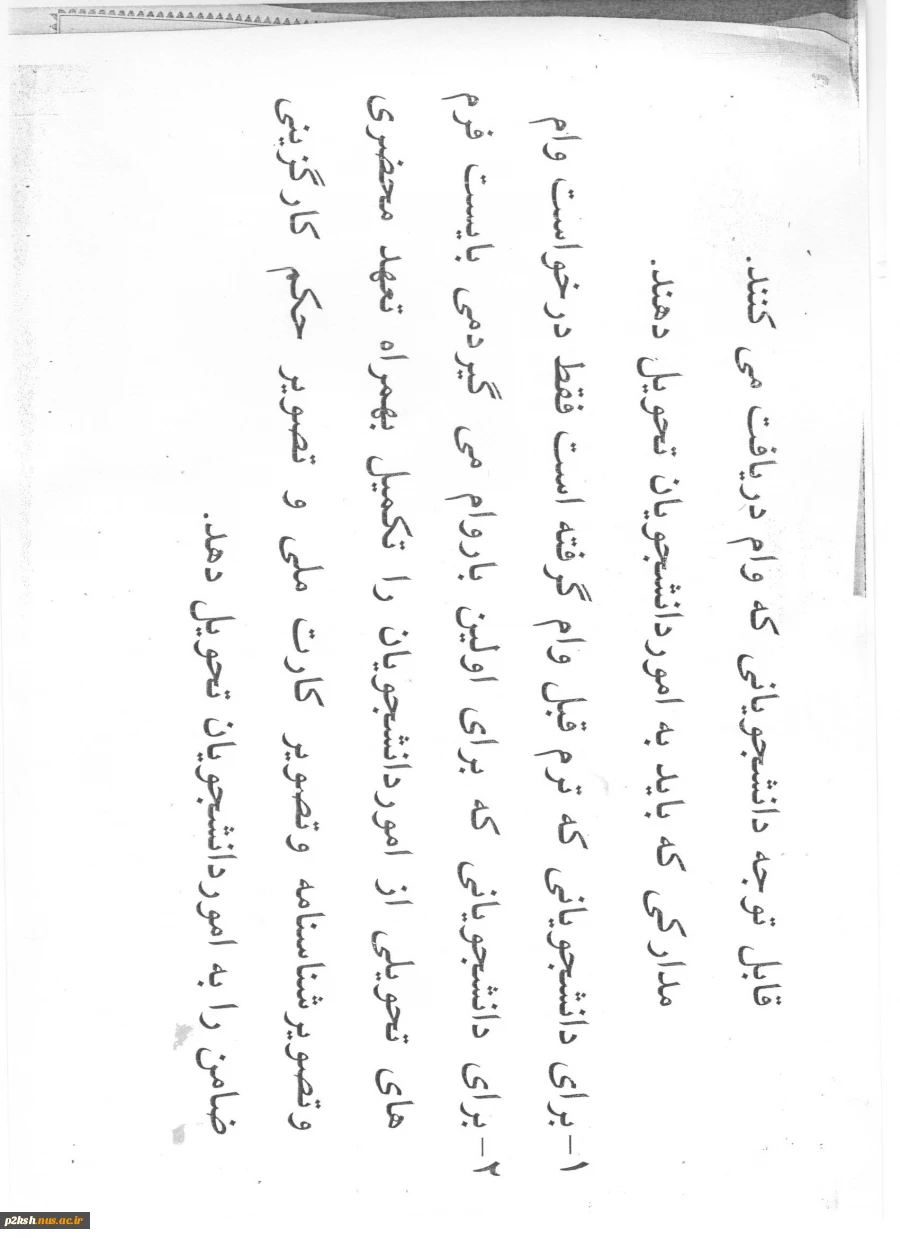 قابل توجه دانشجویانی که وام دریافت می کنند.
مدارکی که باید به اموردانشجویان تحویل دهند.
۱–برای دانشجویانی که ترم قبل وام گرفته است فقط درخواست وام
۲–برای دانشجویانی که برای اولین باروام می گیردمی بایست فرم
های تحویلی از اموردانشجویان را تکمیل بهمراه تعهد محضری
وتصویرشناسنامه وتصویر کارت ملی و تصویر حکم کارگزینی
ضامن را به اموردانشجویان تحویل دهد.
p2ksh.nus.ac.ir